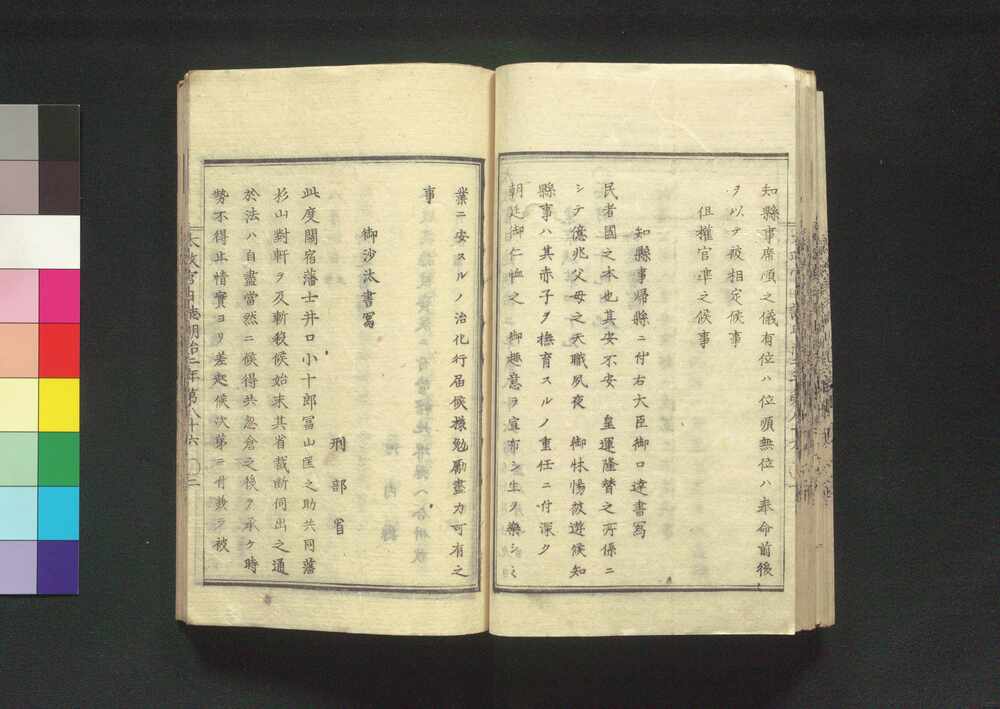 知縣事席順之儀有位ハ位順無位ハ奉命前後
ヲ以テ被相定候事
但權官準之候事
知縣事歸縣ニ付右大臣御口達書寫
民者國之本也其安不安　皇運隆替之所係ニ
シテ億兆父母之天職夙夜　御怵惕被遊候知
縣事ハ其赤子ヲ撫育スルノ重任ニ付深ク
朝廷御仁恤之　御趣意ヲ宣布シ生ヲ樂シミ
業ニ安スルノ治化行届候樣勉勵盡力可有之
事
御沙汰書寫
刑部省
此度關宿藩士井口小十郎冨山匡之助共同藩
杉山對軒ヲ及斬殺候始末其省裁斷伺出之通
於法ハ自盡當然ニ候得共怱倉之後ヲ承ケ時
勢不得止情實ヨリ差起候次第ニ付數ヲ被
太政官日誌明治二年第八十六　二